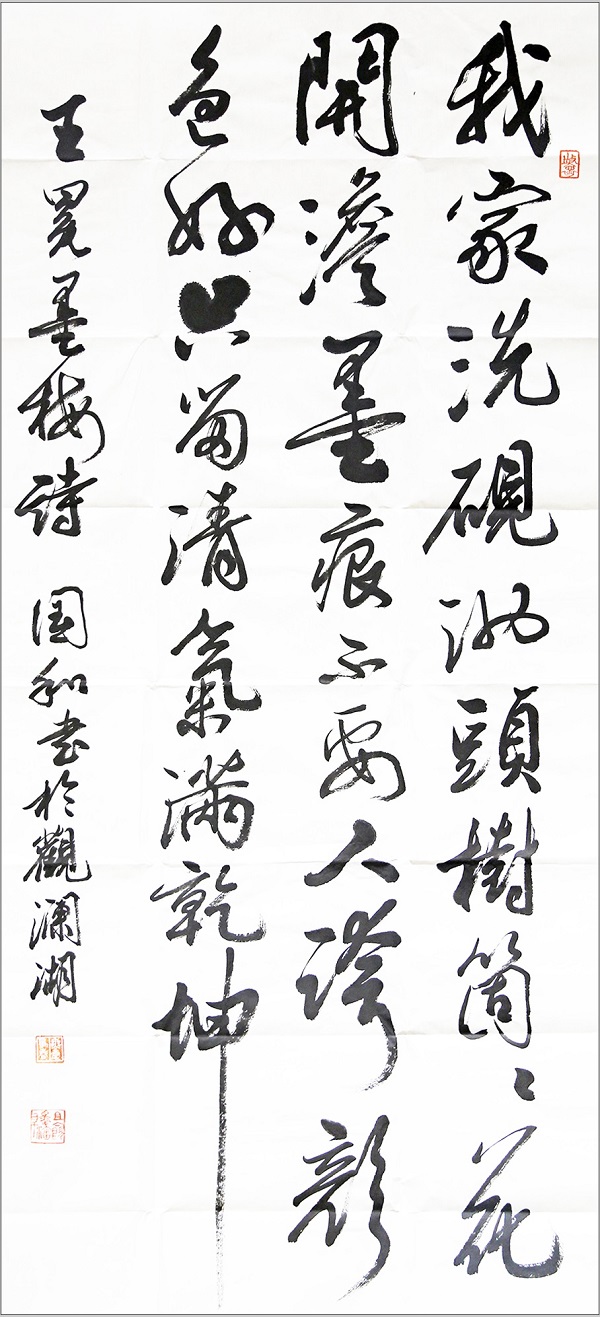 我家洗硯池頭樹箇〻花
開澹墨痕不要人誇顏
色好只留清氣滿乾坤
王冕墨梅詩 国和书於觀瀾湖